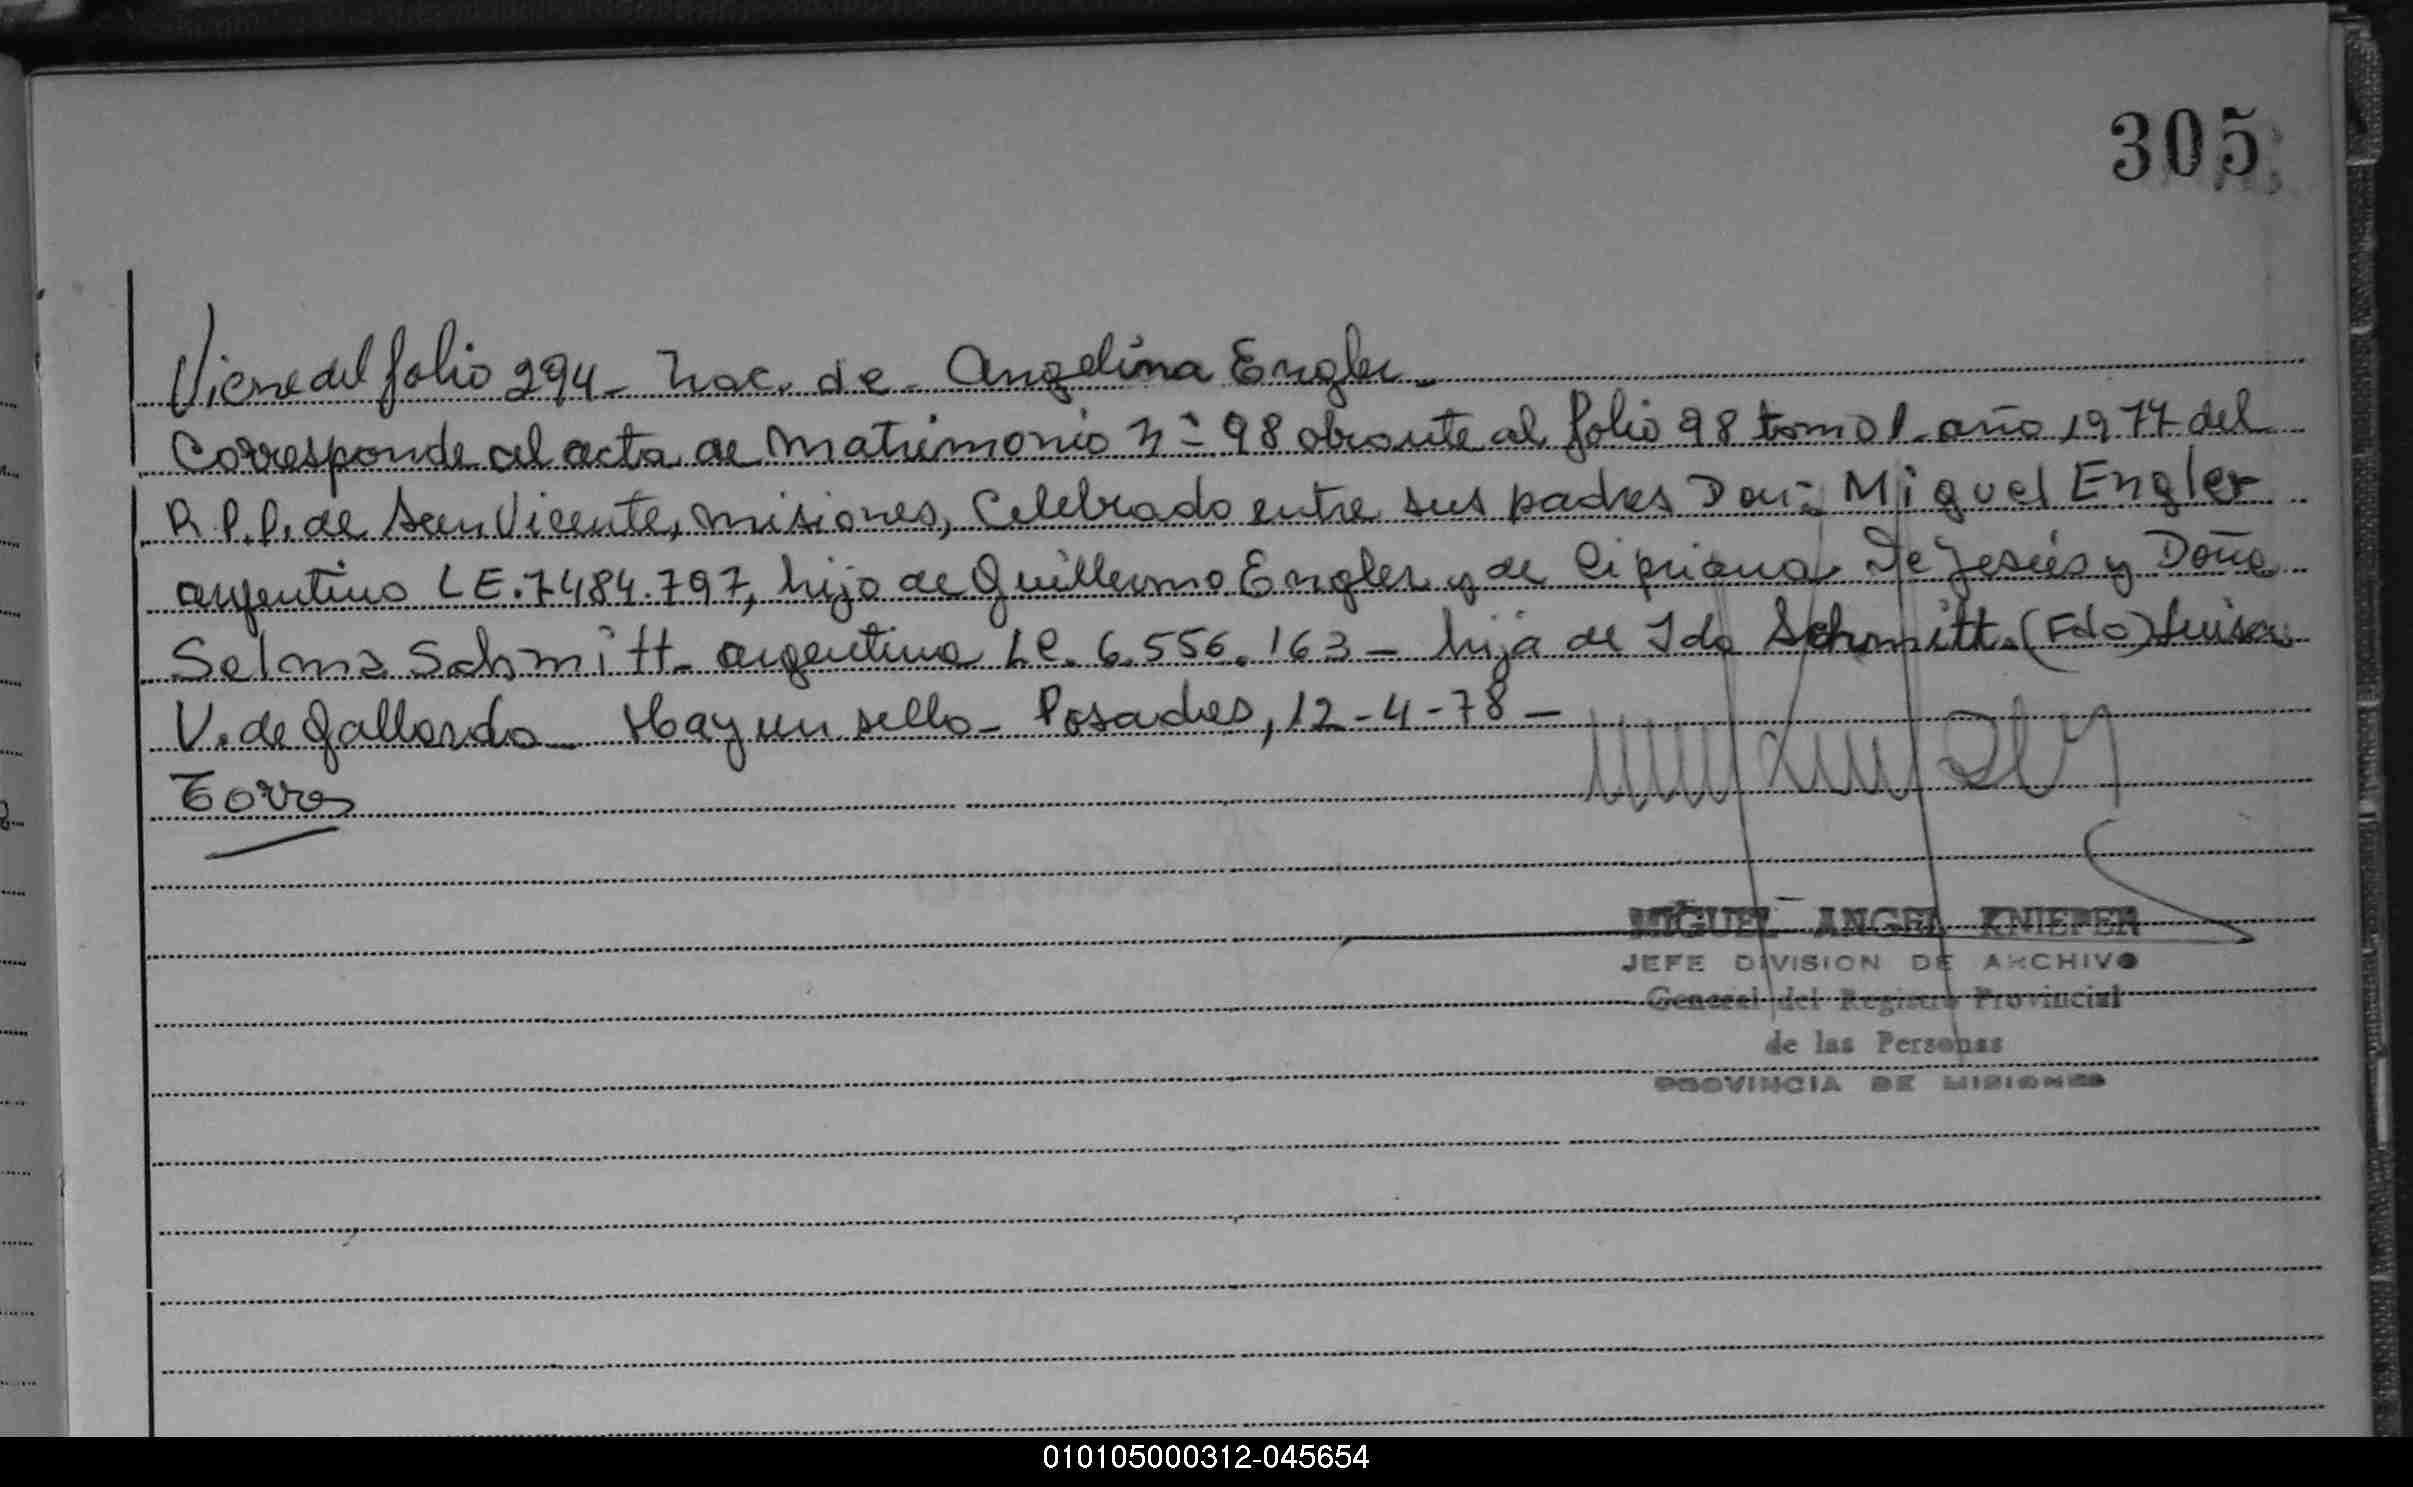 305
Viene del folio 294 - Nac. de - Angelina Engler -
Corresponde al acta de Matrimonio Nº 98 obrante al folio 98 tomo 1 - año 1977 del
R.P.P. de San Vicente, Misiones, Celebrado entre sus padres Don: Miguel Engler
argentino L E. 7484.797, hijo de Guillermo Engler y de Cipriana De Jesús y Doña
Selma Schmitt - argentina L.C. 6.556.163 - hija de Ida Schmitt. (Fdo) Luisa
V. de Gallardo - Hay un sello - Posadas, 12-4-78 -
Torres
MIGUEL ANGEL KNIEPER
JEFE DIVISION DE ARCHIVO
General del Registro Provincial
de las Personas
PROVINCIA DE MISIONES
010105000312-045654